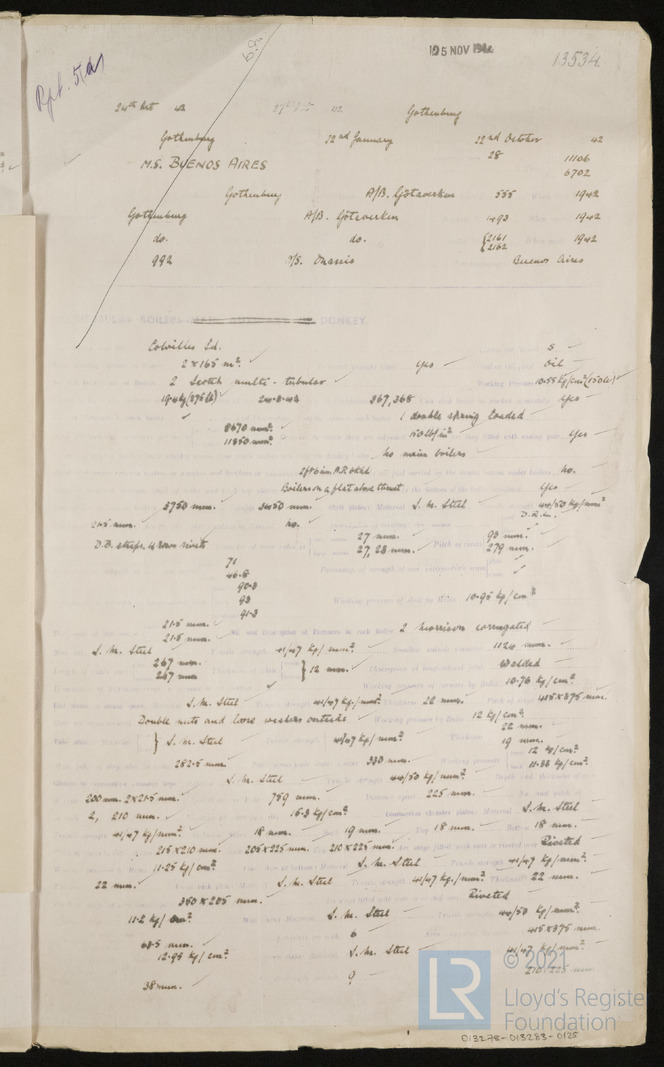 Rpt. 5(a)
5 NOV 194
13534
24th Oct 42 Gothenburg
Gothenburg 22nd January 22nd October 42
M.S. BUENOS AIRES 28 11106
6702
Gothenburg A/B. Götaverken 555 1942
Gothenburg A/B. Götaverken 1493 1942
do. do. {2161 1942
{2162
992 A/S. Onassis Buenos Aires
DONKEY.
Colvilles Ld. S
2 x 165 m². yes oil
2 Scotch multi-tubular 10.55 kg/cm² (150 lb)
24.8.42 267,268 yes
1 double spring loaded
8670 mm². 150 lb/in² yes
11850 mm².
no main boilers
no.
Boilers on a flat above thrust yes
3750 mm. 3450 mm. S. M. Steel 44/50 kg/mm²
21.5 mm. no. D.R.
D.B. straps, 27 mm. 93 mm.
27, 28 mm. 279 mm.
71
46.8
90.3
93 10.95 kg/cm²
91.3
21.5 mm. 2 Morrison corrugated
21.5 mm.
S. M. Steel 41/47 kg/mm² 1124 mm.
267 mm. } 12 mm. Welded
267 mm
10.76 kg/cm²
S. M. Steel 41/47 kg/mm² 22 mm. 415 x 375 mm.
Double nuts and loose washers outside 12 kg/cm²
22 mm.
} S. M. Steel 41/47 kg/mm² 19 mm.
12 kg/cm²
282.5 mm. 330 mm. 11.38 kg/cm²
S. M. Steel 44/50 kg/mm²
200 mm. 2x21.5 mm. 759 mm. 225 mm.
2, 210 mm. 15.3 kg/cm² S. M. Steel
41/47 kg/mm² 18 mm. 19 mm. 18 mm. 18 mm.
215 x 210 mm. 205 x 225 mm. 210 x 225 mm. Riveted
11.25 kg/cm² S. M. Steel 41/47 kg/mm²
22 mm. S. M. Steel 41/47 kg./mm² 22 mm.
380 x 205 mm. Riveted
11.2 kg/cm² S. M. Steel 44/50 kg/mm²
6 415 x 375 mm
63.5 mm. S. M. Steel 41/47 kg/mm²
12.95 kg/cm²
38 mm. 9 210/225 mm
LR
© 2021
Lloyd's Register
Foundation
013278-013283-0125